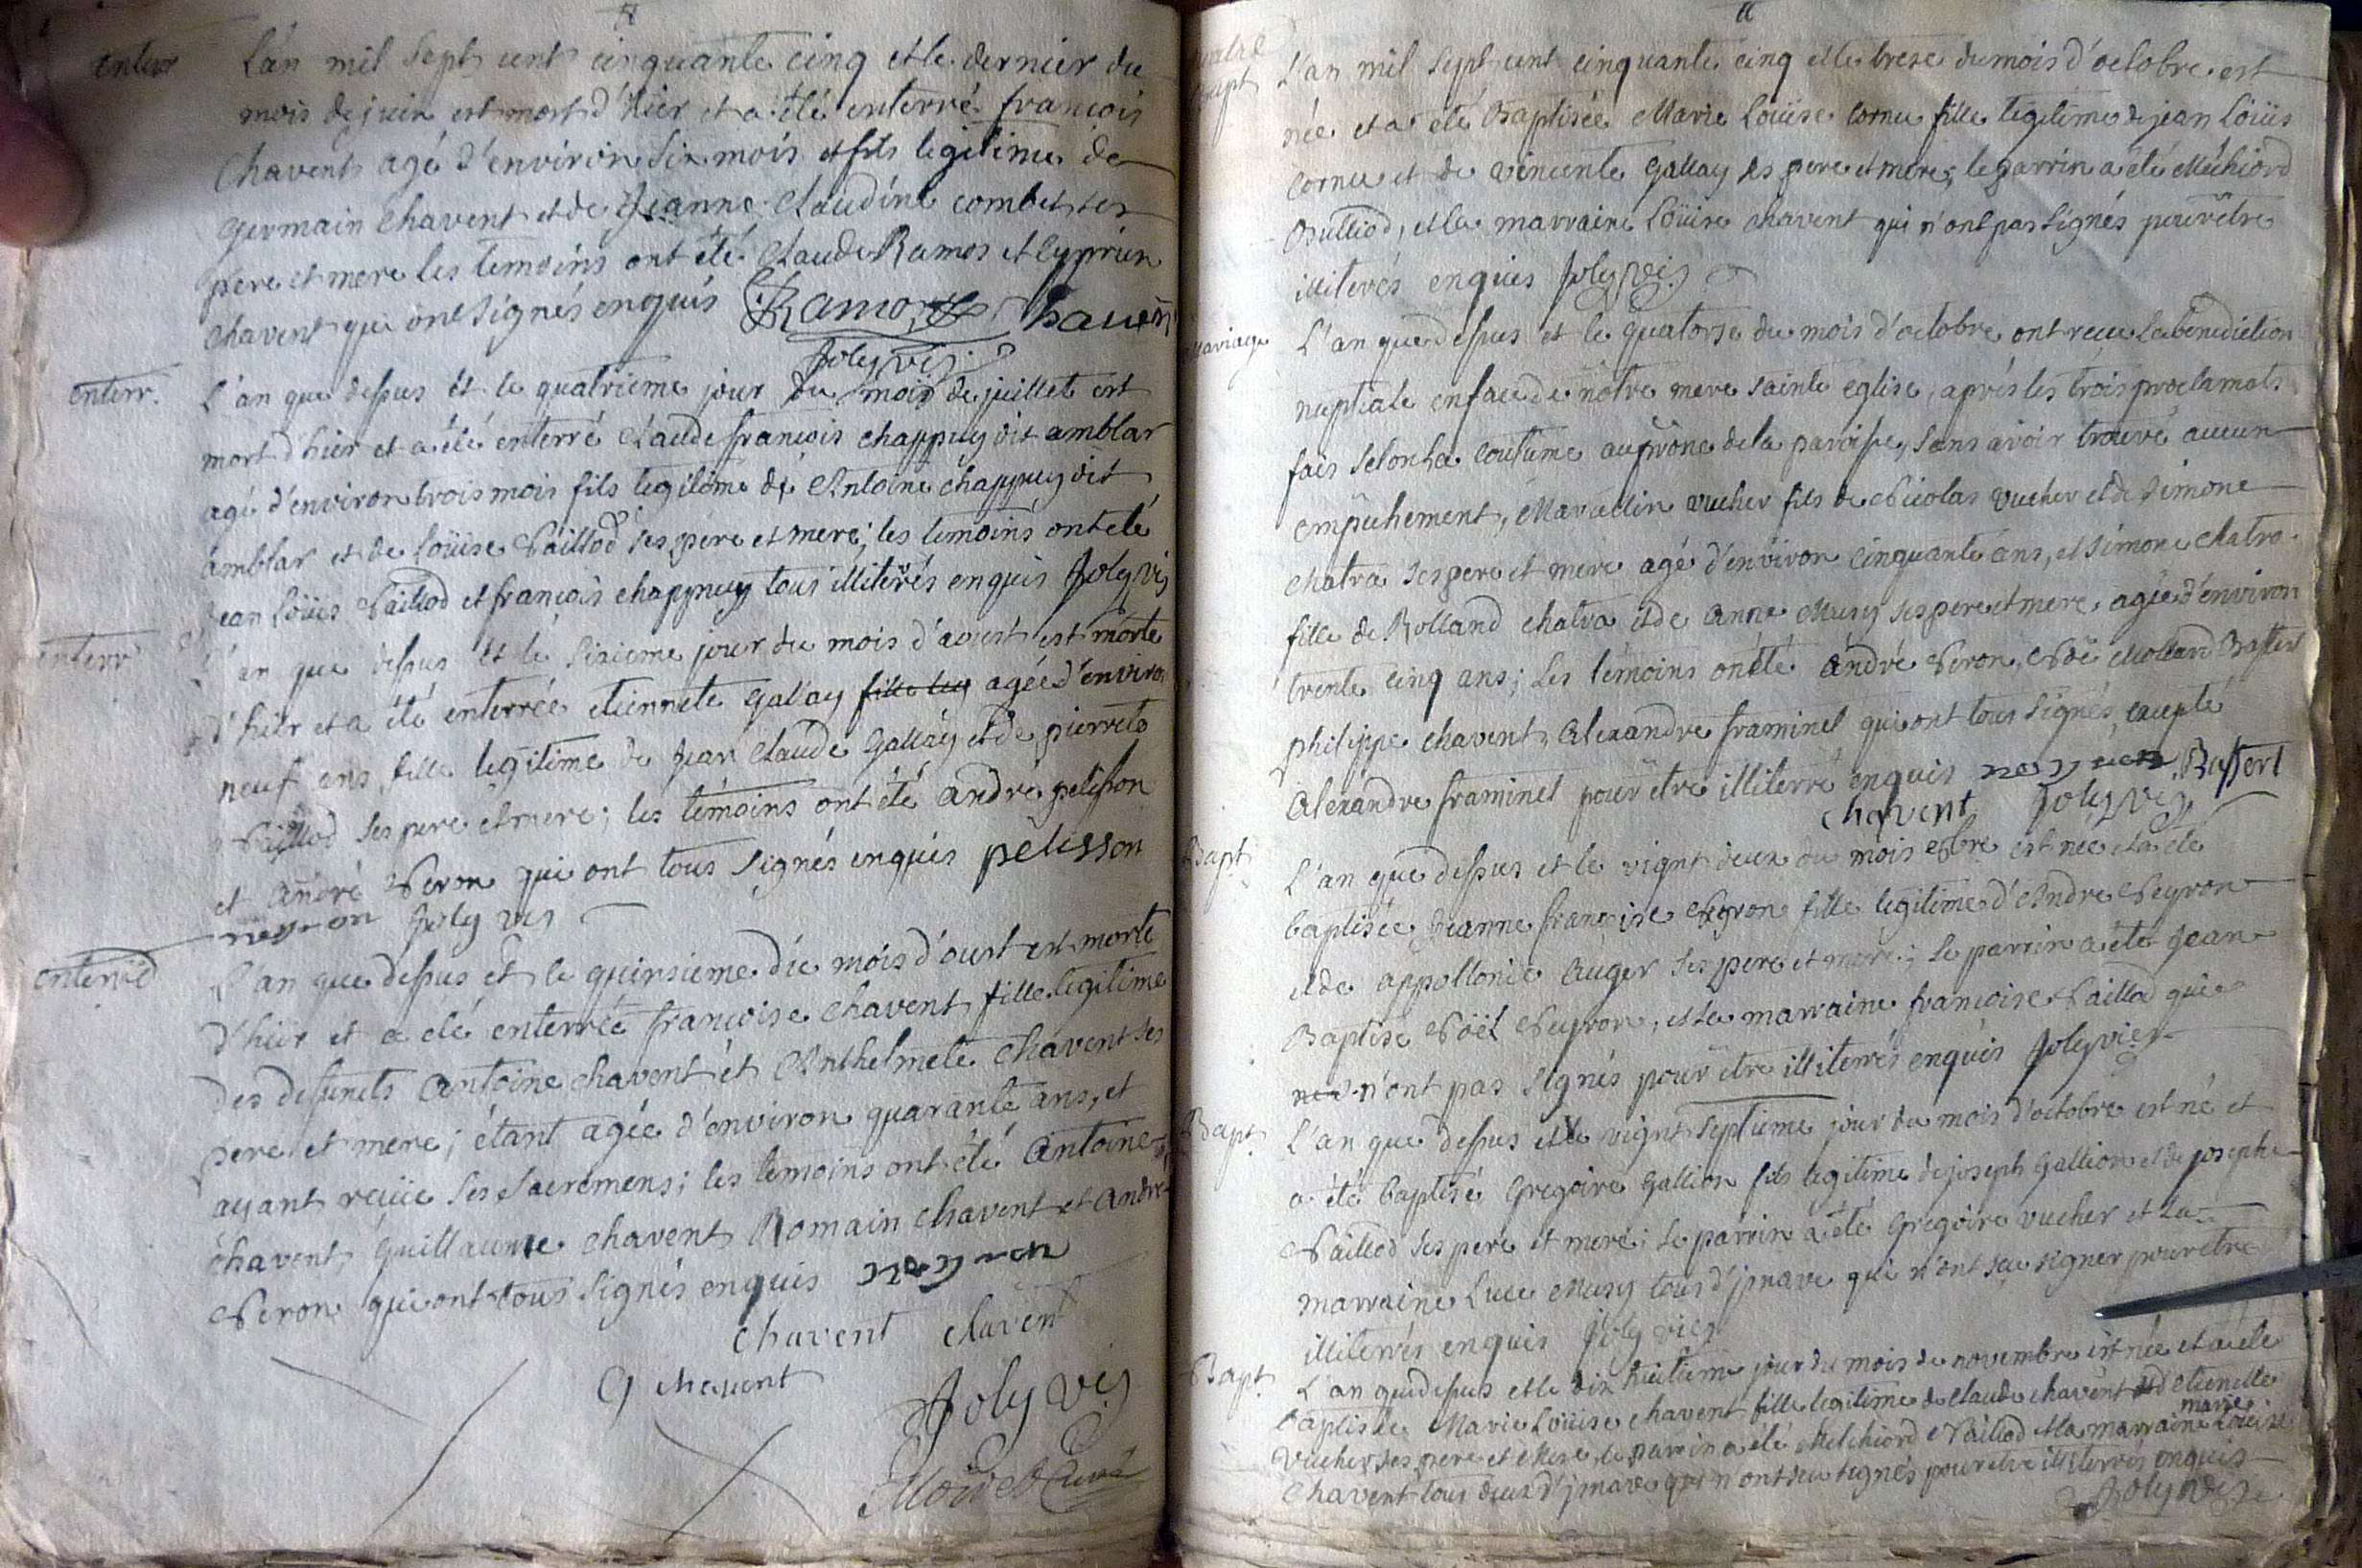 enterr
L'an mil sept cent cinquante cinq et le dernier du
mois de juin est mort d'hier et a été enterré françois
Chavent agé d'environ six mois et fils legitime de
germain Chavent et de Jeanne Claudine combet ses
pere et mere les temoins ont été Claude Ramos et Cyprien
Chavent qui ont signés enquis Ramos Chavent
Joly vic
enterr.
L'an que dessus et le quatrieme jour du mois de juillet est
mort d'hier et a été enterré Claude françois chappuy dit amblar
agé d'environ trois mois fils legitime de Antoine chappuy dit
amblar et de Loüise Naillod ses pere et mere; les temoins ont été
Jean Loüis Naillod et françois chappuy tous illiterés enquis Joly vic
enterr
L'an que dessus et le sixieme jour du mois d'aoust est morte
d'hier et a été enterrée etiennete Gallay fille leg agée d'environ
neuf ans fille legitime de Jean Claude Gallay et de pierrete
Naillod ses pere et mere; les temoins ont été andré pelisson
et André Neron qui ont tous signés enquis pelisson
neyron Joly vic
enterré
L'an que dessus et le quinsieme du mois d'oust est morte
d'hier et a été enterrée françoise Chavent fille legitime
des defuncts Antoine chavent et Anthelmete Chavent ses
pere et mere; étant agée d'environ quarante ans, et
ayant reçüe ses sacremens; les temoins ont été Antoine
chavent, Guillaume chavent Romain Chavent et André
Neron qui ont tous signés enquis neyron
Chavent chavent
G chavent
Joly vic
Bapt
L'an mil sept cent cinquante cinq et le trese du mois d'octobre est
née et a été Baptisée Marie Loüise Cornu fille legitime de jean Loüis
Cornu et de vincente Gallay ses pere et mere; le parrin a été Melchiord
Bulliod, et la marraine Loüise Chavent qui n'ont pas signés pour être
illiterés enquis Joly vic
Mariage
L'an que dessus et le quatorse du mois d'octobre ont recu la benediction
nuptiale en face de nôtre mere sainte eglise, aprés les trois proclamats
fais selon la coutume au prône de la paroisse, sans avoir trouvé aucun
empêchement, Marcellin vucher fils de Nicolas vucher et de simone
Chatra ses pere et mere agé d'environ cinquante ans, et simone Chatra
fille de Rolland chatra et de Anne Musy ses pere et mere, agée d'environ
trente cinq ans; Les temoins ont été André Neron, Noë Mollard Bastert
philippe chavent, Alexandre framinet qui ont tous signés, excepté
Alexandre framinet pour être illiterré enquis neyron Bastert
chavent Joly vic
Bapt
L'an que dessus et le vignt deux du mois 8bre est née et a été
baptisée Jeanne françoise Neyron fille legitime d'Andre Neyron
et de appollonie Auger ses pere et mere; le parrin a été Jean
Baptise Nöël Neyron, et la marraine françoise Naillod qui
n'ont pas signés pour être illiterrés enquis Joly vic
Bapt
L'an que dessus et le vignt septieme jour du mois d'octobre est né et
a été baptisé Gregoire Gallion fils legitime de joseph Gallion et de josephe
Naillod ses pere et mere; Le parrin a été Gregoire vucher et La
marraine Luce Musy tous d'jnnave qui n'ont seu signer pour être
illiterrés enquis Joly vic
Bapt
L'an que dessus et le dix huitieme jour du mois de novembre est née et a été
baptisée Marie Loüise chavent fille legitime de Claude chavent et d'etiennette
vucher ses pere et mere, le parrin a été Melchiord Naillod et la marraine marie Loüise
Chavent tous deux d'jnnave qui n'ont seu signés pour être illiterrés enquis
Joly vic